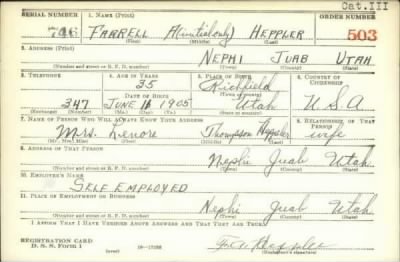 Cat.III
SERIAL NUMBER 1. NAME (Print) ORDER NUMBER
746 FARRELL A(initial only) HEPPLER 503
(First) (Middle) (Last)
2. ADDRESS (Print)
NEPHI JUAB UTAH
(Number and street or R. F. D. number) (Town) (County) (State)
3. TELEPHONE 4. AGE IN YEARS 5. PLACE OF BIRTH 6. COUNTRY OF CITIZENSHIP
35 Richfield
DATE OF BIRTH (Town or county)
347 JUNE 16 1905 Utah U.S.A
(Exchange) (Number) (Mo.) (Day) (Yr.) (State or country)
7. NAME OF PERSON WHO WILL ALWAYS KNOW YOUR ADDRESS 8. RELATIONSHIP OF THAT PERSON
Mrs. Lenore Thompson Heppler wife
(Mr., Mrs., Miss) (First) (Middle) (Last)
9. ADDRESS OF THAT PERSON
Nephi Juab Utah
(Number and street or R. F. D. number) (Town) (County) (State)
10. EMPLOYER'S NAME
SELF EMPLOYED
11. PLACE OF EMPLOYMENT OR BUSINESS
Nephi Juab Utah
(Number and street or R. F. D. number) (Town) (County) (State)
I AFFIRM THAT I HAVE VERIFIED ABOVE ANSWERS AND THAT THEY ARE TRUE.
REGISTRATION CARD
D. S. S. Form 1 16-17105 Heppler
(Registrant's signature)